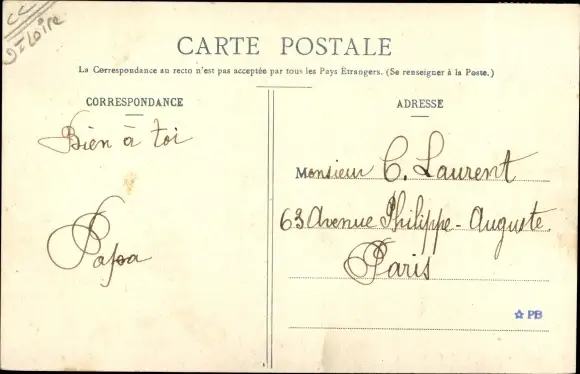 CC
I Loire
CARTE POSTALE
La Correspondance au recto n'est pas acceptée par tous les Pays Étrangers. (Se renseigner à la Poste.)
CORRESPONDANCE
Bien à toi
Papa
ADRESSE
Monsieur C. Laurent
63 Avenue Philippe-Auguste
Paris
☆ PB